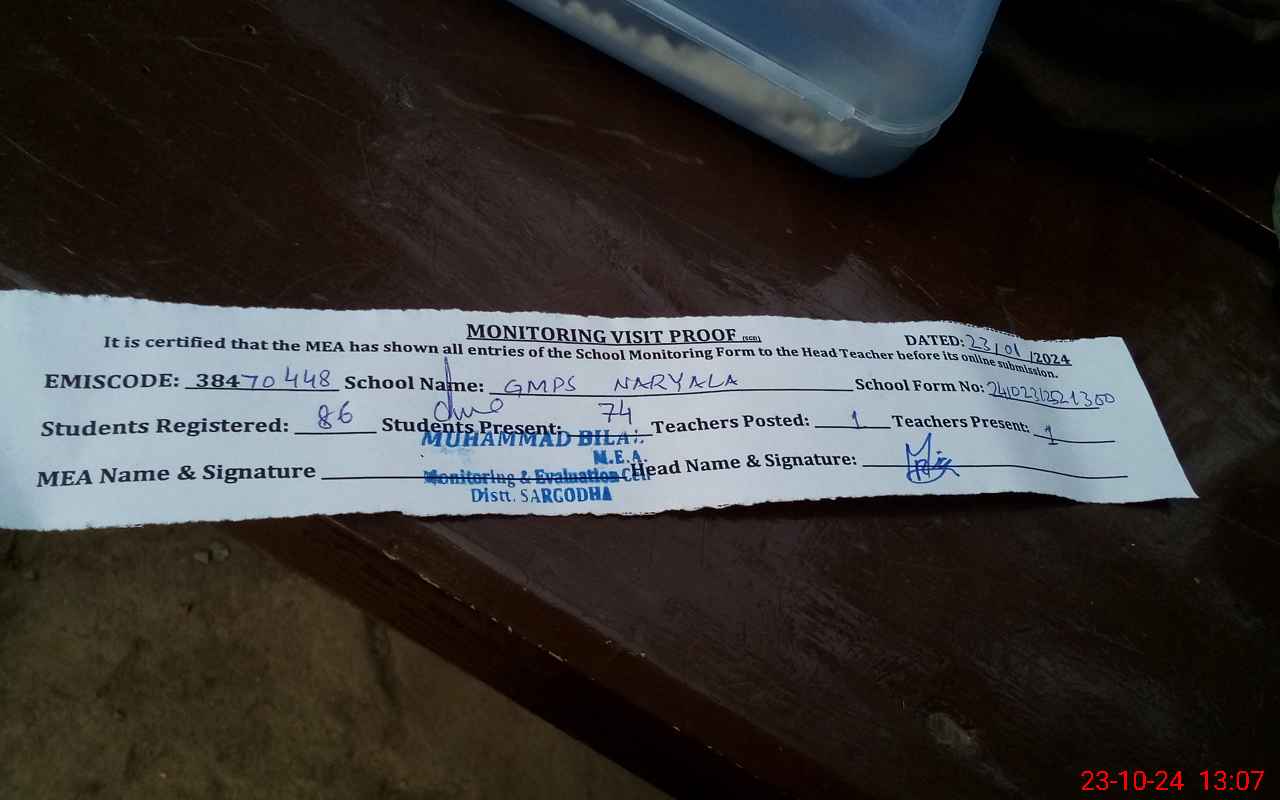 MONITORING VISIT PROOF (SCH)
DATED: 23/01/2024
It is certified that the MEA has shown all entries of the School Monitoring Form to the Head Teacher before its online submission.
EMISCODE: 38470448 School Name: GMPS NARYALA School Form No:
Students Registered: 86 Students Present: 74 Teachers Posted: 1 Teachers Present: 1
MEA Name & Signature Head Name & Signature:
MUHAMMAD BILAL
M.E.A.
Monitoring & Evaluation Cell
Distt. SARGODHA
23-10-24 13:07